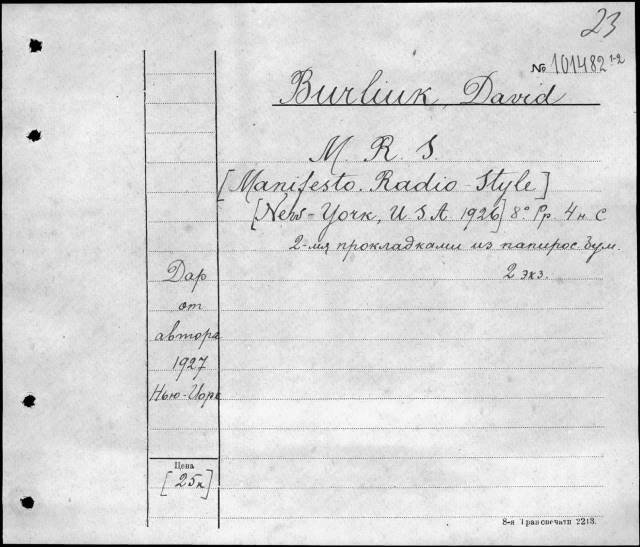 23
№ 101482 1-2
Burliuk, David
M. R. S.
[Manifesto. Radio-Style]
[New-York, U.S.A. 1926] 8° Pp. 4 н. с
2-мя прокладками из папирос. бум.
2 экз.
Дар
от
автора
1927
Нью-Иорк
Цена
[25к]
8-я Транспечати 2213.